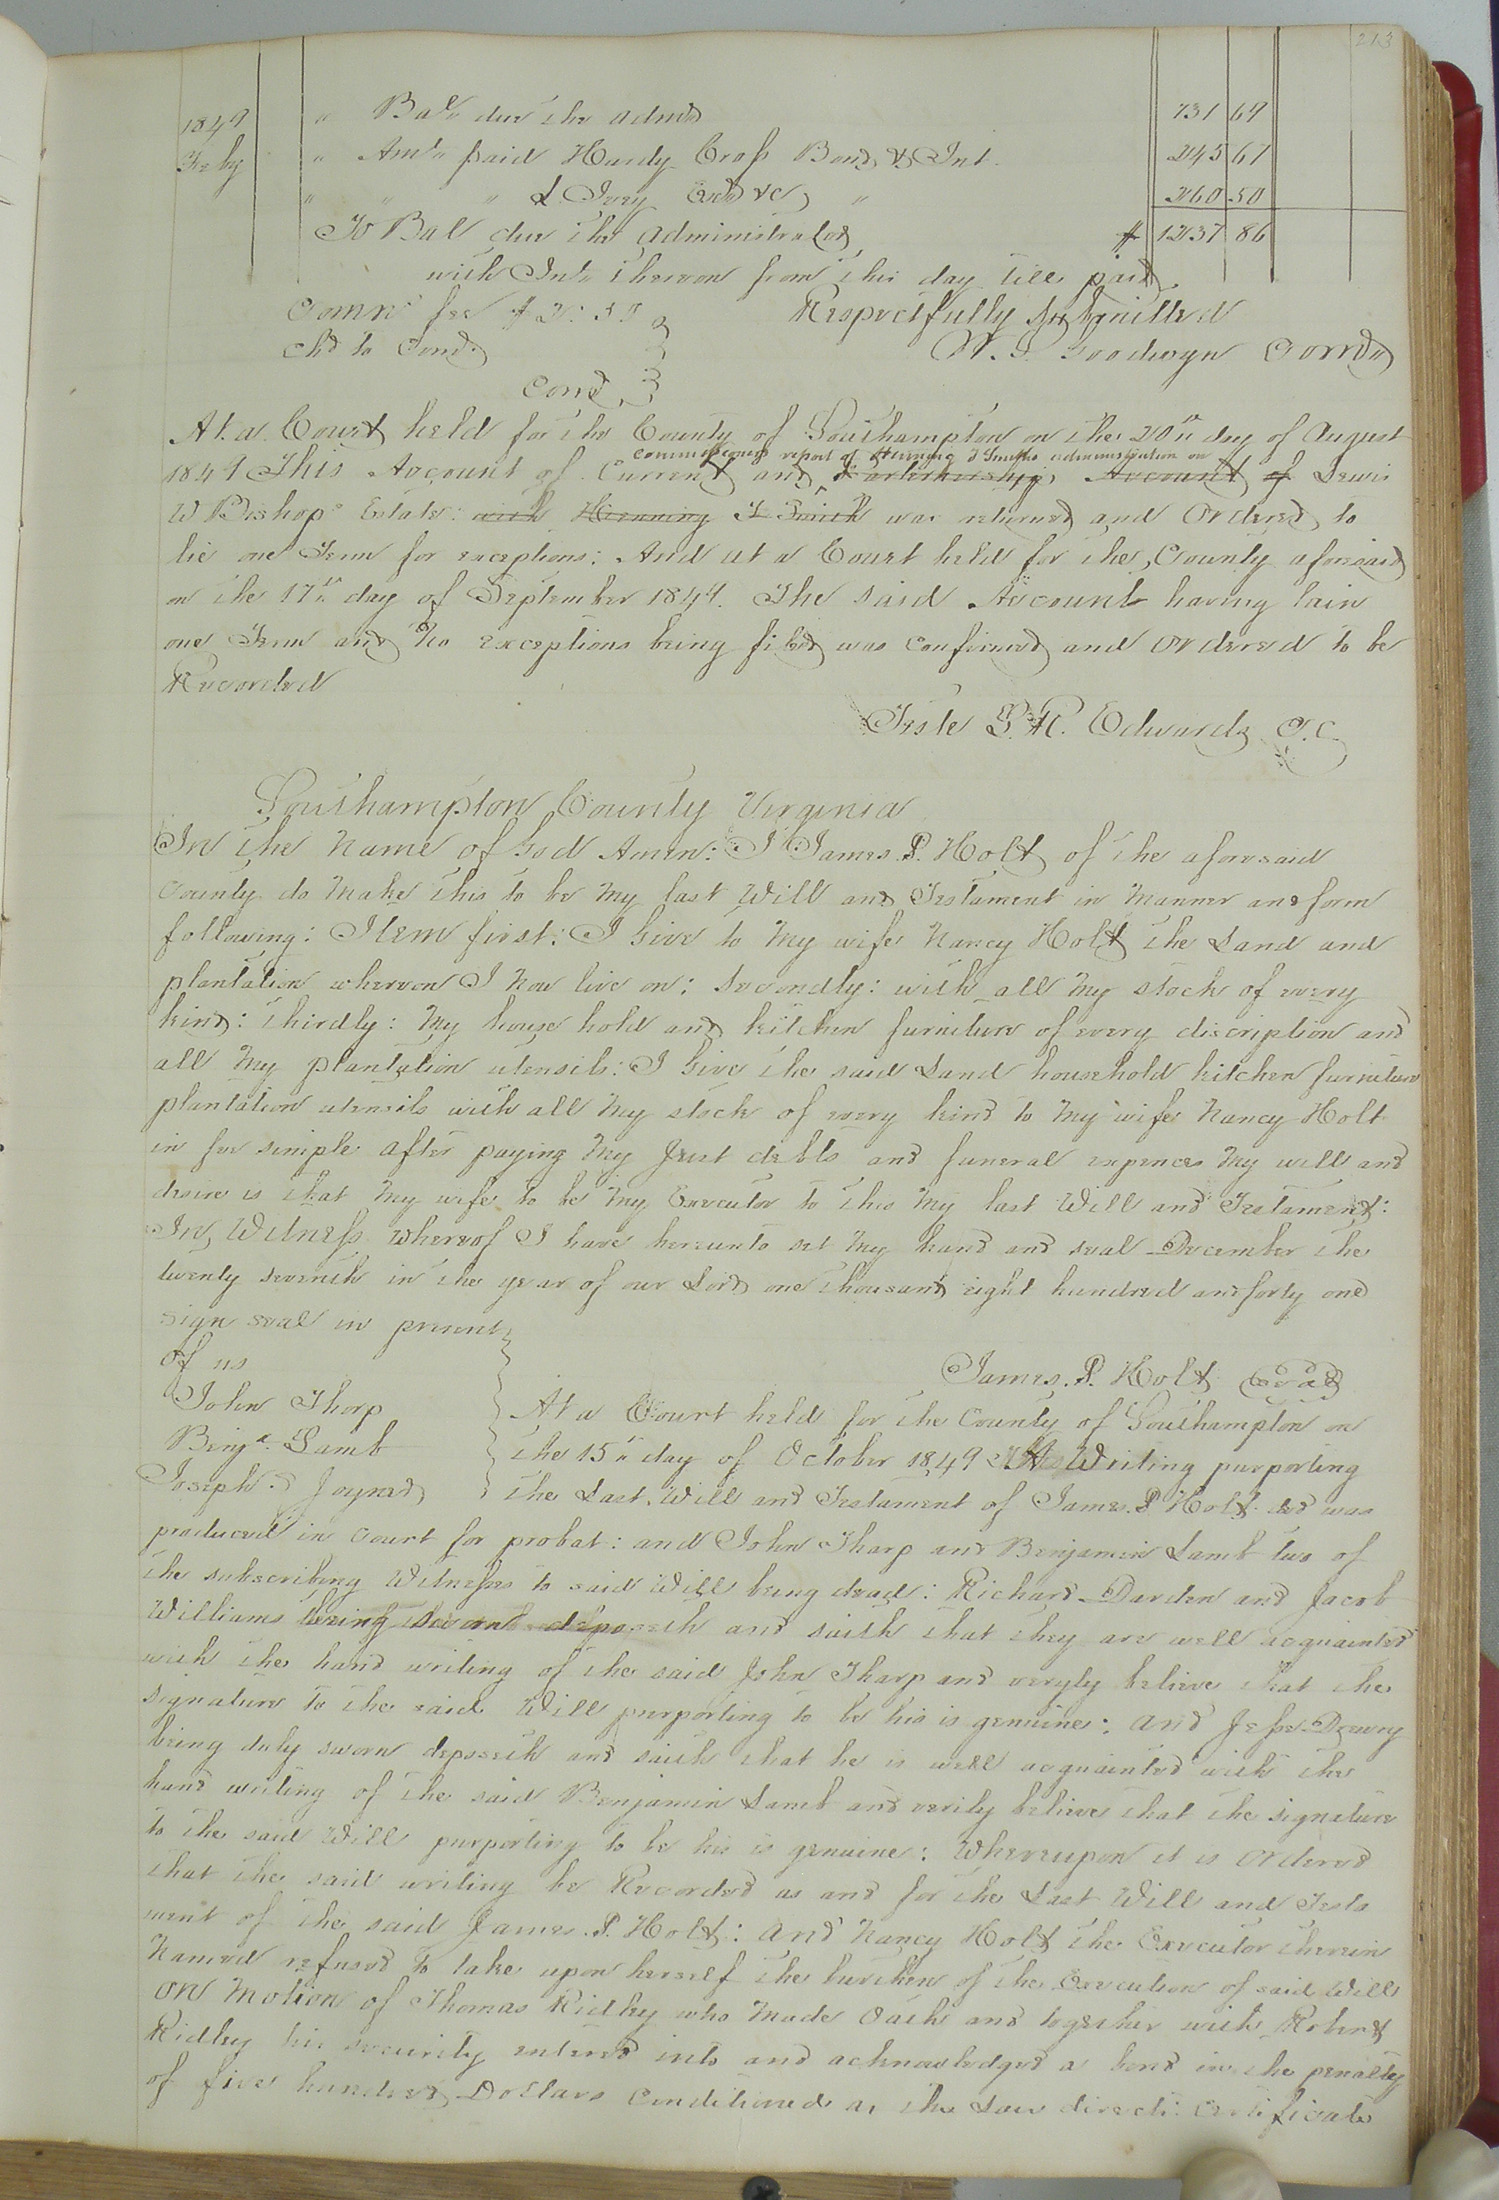 213
1849 " Bale due the admr 731 69
Feby " Amt paid Hardy Cross Bond & Int. 245 67
" " " L Ivey Exr &c " 260 50
To Bal due the Administrator $ 1237 86
with Int. thereon from this day till paid
Comrs fee $2.55 Respectfully Submitted
chd to Comd. W. S. Goodwyn Comr
Comd
At a Court held for the County of Southampton on the 20th day of August
Commissioners report of Henning T Smiths administration on
1849 This Account of Current and Partnership Account of Lewis
W Bishops Estate: with Henning T Smith was returned and Ordered to
lie one Term for exceptions: And at a Court held for the County aforesaid
on the 17th day of September 1849. The said Account having lain
one Term and No exceptions being filed was confirmed and Ordered to be
Recorded
Teste L. R. Edwards C.C
Southampton County Virginia
In the Name of God Amen: I James. P. Holt of the aforesaid
County do Make this to be My last Will and Testament in Manner and form
following: Item first: I Give to My wife Nancy Holt the Land and
plantation whereon I Now live on: Secondly: with all My stock of every
kind: thirdly: My house hold and kitchen furniture of every discription and
all My plantation utensils: I Give the said Land household kitchen furniture
plantation utensils with all My stock of every kind to My wife Nancy Holt
in fee simple after paying My Just debts and funeral expences My will and
desire is that My wife to be My Executor to this My last Will and Testament:
In Witness whereof I have hereunto set My hand and seal December the
twenty seventh in the year of our Lord one thousand eight hundred and forty one
Sign seal in present
of us
James. P. Holt Seal
John Tharp At a Court held for the County of Southampton on
Benja. Lamb the 15th day of October 1849 A Writing purporting
Joseph. Joyner the Last Will and Testament of James. P Holt decd was
produced in Court for probat: and John Tharp and Benjamin Lamb two of
the subscribing Witnesses to said Will being dead: Richard Darden and Jacob
Williams being sworn deposeth and saith that they are well acquainted
with the hand writing of the said John Tharp and veryly believe that the
signature to the said Will purporting to be his is genuine: and Jesse Drewry
being duly sworn deposeth and saith that he is well acquainted with the
hand writing of the said Benjamin Lamb and verily believe that the signature
to the said Will purporting to be his is genuine: Whereupon it is Ordered
that the said writing be Recorded as and for the Last Will and Testa
ment of the said James. P. Holt: and Nancy Holt the Executor therein
Named refused to take upon herself the burthen of the Execution of said Will
On Motion of Thomas Ridley who Made Oath and together with Robert
Ridley his security entered into and acknowledged a bond in the penalty
of five hundred Dollars Conditioned as the Law directs Certificate